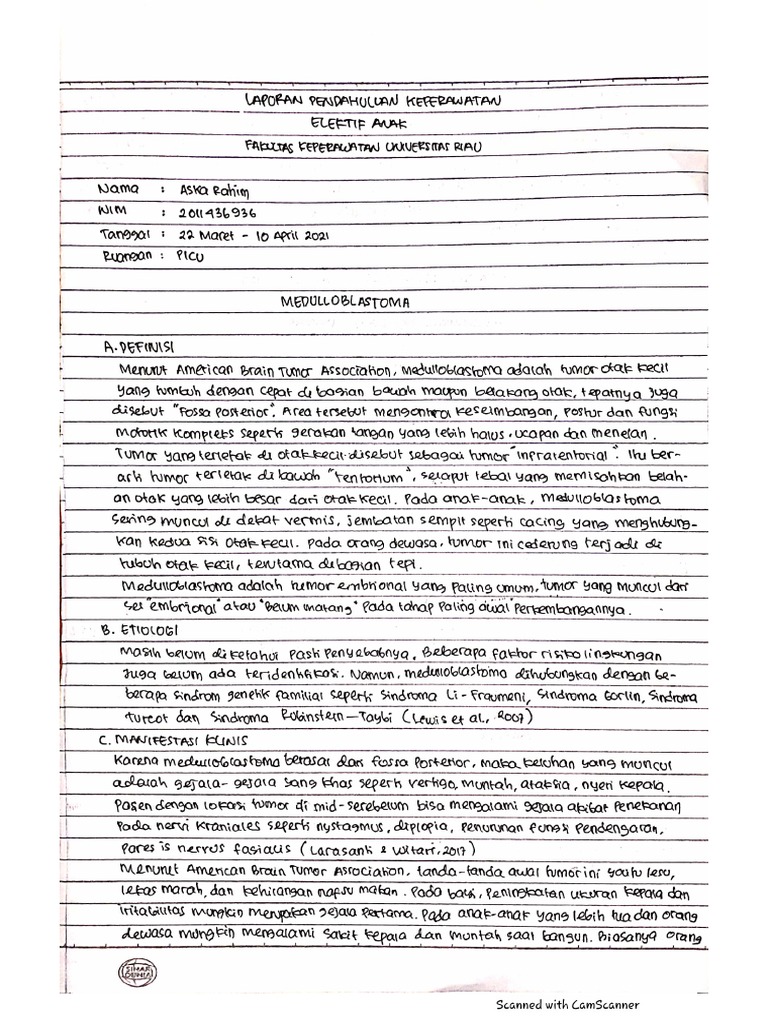 LAPORAN PENDAHULUAN KEPERAWATAN
ELEKTIF ANAK
FAKULTAS KEPERAWATAN UNIVERSITAS RIAU
Nama : Aska Rahim
NIM : 2011436936
Tanggal : 22 Maret - 10 April 2021
Ruangan : PICU
MEDULLOBLASTOMA
A. DEFINISI
Menurut American Brain Tumor Association, medulloblastoma adalah tumor otak kecil
yang tumbuh dengan cepat di bagian bawah maupun belakang otak, tepatnya juga
disebut "Fossa posterior". Area tersebut mengontrol keseimbangan, postur dan fungsi
motorik kompleks seperti gerakan tangan yang lebih halus, ucapan dan menelan.
Tumor yang terletak di otak kecil disebut sebagai tumor "infratentorial". Itu ber-
arti tumor terletak di bawah "tentorium", selaput tebal yang memisahkan belah-
an otak yang lebih besar dari otak kecil. Pada anak-anak, medulloblastoma
sering muncul di dekat vermis, jembatan sempit seperti cacing yang menghubung-
kan kedua sisi otak kecil. Pada orang dewasa, tumor ini cederung terjadi di
tubuh otak kecil, terutama di bagian tepi.
Medulloblastoma adalah tumor embrional yang paling umum, tumor yang muncul dari
sel "embrional" atau "Belum matang" pada tahap paling awal perkembangannya.
B. ETIOLOGI
Masih belum diketahui pasti penyebabnya. Beberapa faktor risiko lingkungan
juga belum ada teridentifikasi. Namun, medulloblastoma dihubungkan dengan be-
berapa sindrom genetik familial seperti sindroma Li-Fraumeni, Sindroma Gorlin, Sindroma
turcot dan Sindroma Rubinstern-Taybi (Lewis et al., 2007)
C. MANIFESTASI KLINIS
Karena medulloblastoma berasal dari fossa posterior, maka keluhan yang muncul
adalah gejala-gejala yang khas seperti vertigo, muntah, ataksia, nyeri kepala.
Pasien dengan lokasi tumor di mid-serebelum bisa mengalami gejala akibat penekanan
pada nervi kraniales seperti nystagmus, diplopia, penurunan fungsi pendengaran,
pares is nervus fasialis (Larasanti & Witari, 2017)
Menurut American Brain Tumor Association, tanda-tanda awal tumor ini yaitu lesu,
lekas marah, dan kehilangan napsu makan. Pada bayi, peningkatan ukuran kepala dan
iritabilitas mungkin merupakan gejala pertama. Pada anak-anak yang lebih tua dan orang
dewasa mungkin mengalami sakit kepala dan muntah saat bangun. Biasanya orang
SINAR
DUNIA
Scanned with CamScanner